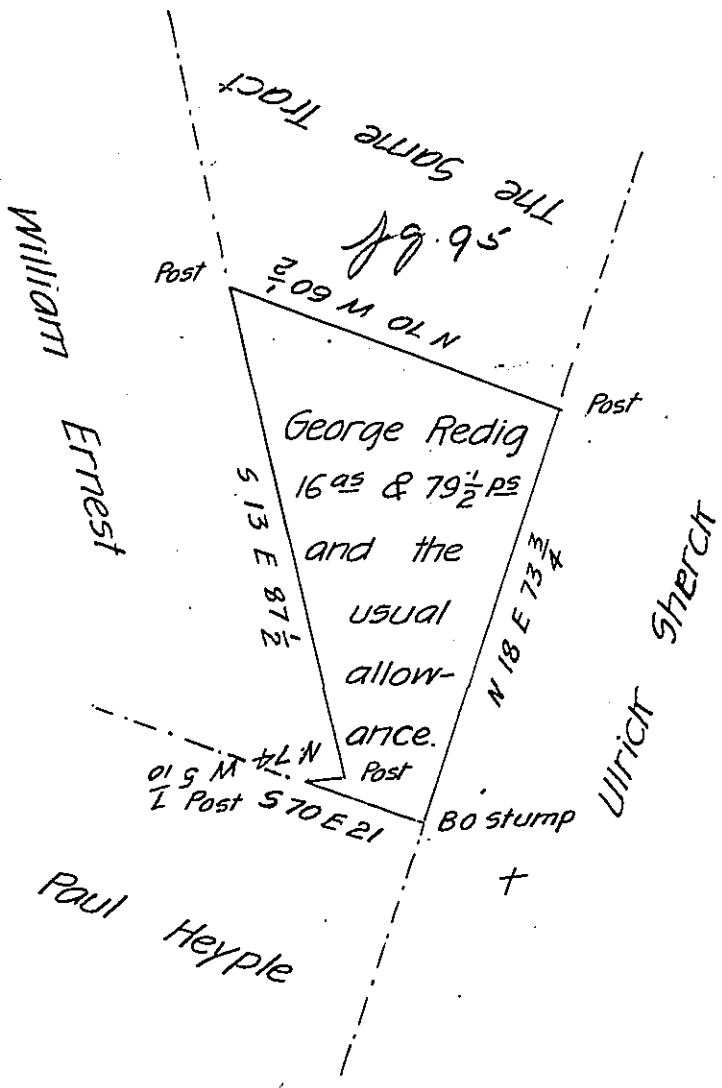 The Same Tract
William Ernest
Post
N 70 W 60 1/2
Post
George Redig
16 as & 79 1/2 ps
and the
usual
allow-
ance.
S 13 E 87 1/2
N 18 E 73 3/4
Ulrick Sherck
N. 74 W 5
Post
Post S 70 E 21
Bo stump
+
Paul Heyple